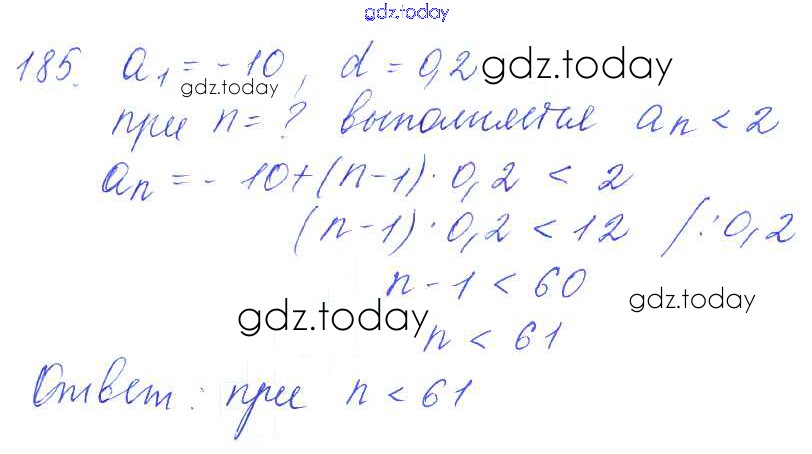 gdz.today
185. a₁ = -10, d = 0,2 gdz.today
gdz.today
при n = ? выполняется aₙ < 2
aₙ = -10 + (n-1) · 0,2 < 2
(n-1) · 0,2 < 12 / : 0,2
n-1 < 60
gdz.today gdz.today
n < 61
Ответ: при n < 61